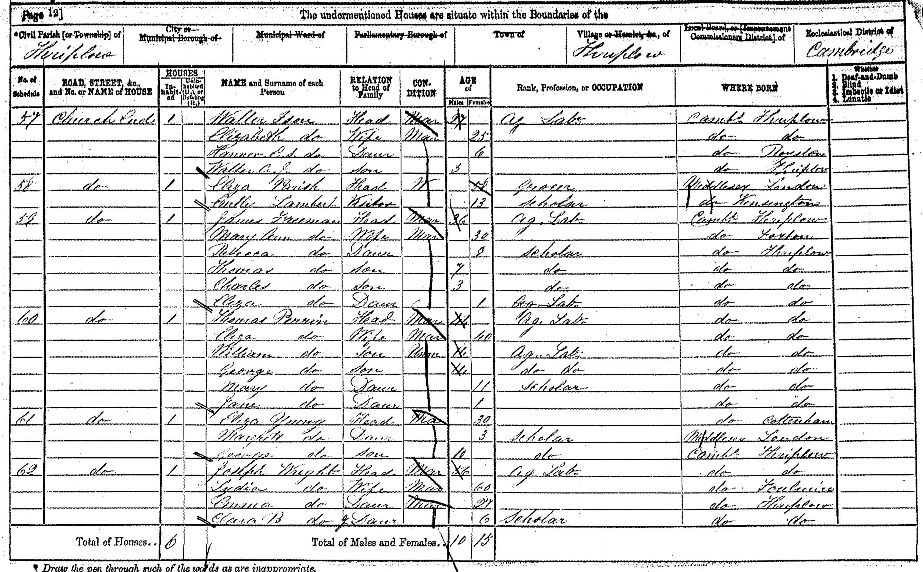 Page 12]
The undermentioned Houses are situate within the Boundaries of the
Civil Parish [or Township] of City or Municipal Borough of Municipal Ward of Parliamentary Borough of Town of Village or Hamlet, &c., of Local Board, or [Improvement Commissioners District] of Ecclesiastical District of
Thriplow Thriplow Cambridge
No. of Schedule ROAD, STREET, &c., and No. or NAME of HOUSE HOUSES Inhabited Uninhabited (U.), or Building (B.) NAME and Surname of each Person RELATION to Head of Family CONDITION AGE of Males Females Rank, Profession, or OCCUPATION WHERE BORN Whether 1. Deaf-and-Dumb 2. Blind 3. Imbecile or Idiot 4. Lunatic
57 Church End 1 Walter Head Mar 27 Ag Lab Camb Thriplow
Elizabeth do Wife Mar 25 do do
do Daur 6 do Royston
Walter do son 3 do Thriplow
58 do 1 Eliza Parish Head W Grocer Middlesex London
Emily Lambert Visitor 13 scholar do Kensington
59 do 1 James Freeman Head Mar 36 Ag. Lab. Camb Thriplow
Mary Ann do Wife Mar 30 do Foxton
Rebecca do Daur 8 scholar do Thriplow
Thomas do son 7 do do do
Charles do son 3 do do do
Eliza do Daur 1 Ag Lab do do
60 do 1 Thomas Perrin Head Mar Ag. Lab do do
Eliza do Wife Mar 40 do do
William do Son Unm Ag. Lab do do
George do son do do do do
Mary do Daur 11 scholar do do
Jane do Daur 1 do do
61 do 1 Eliza Young Head Mar 30 do Cottenham
do Daur 3 scholar Middlesex London
George do son 10 do Camb Thriplow
62 do 1 Joseph Wright Head Mar 66 Ag Lab do do
Lydia do Wife Mar 60 do Foulmire
Emma do Daur Mar 24 do Thriplow
Clara B do g Daur 6 Scholar do do
Total of Houses.. 6 Total of Males and Females.. 10 15
* Draw the pen through such of the words as are inappropriate.